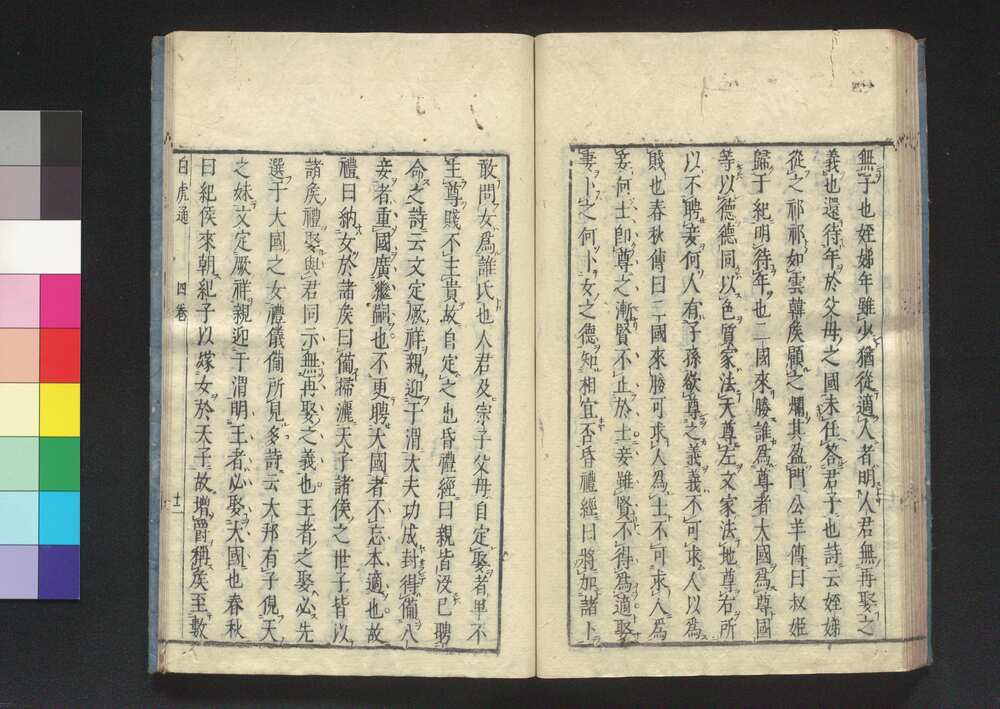 無子也姪娣年雖少猶從適人者明人君無再娶之
義也還待年於父母之國未任荅君子也詩云姪娣
從之祁祁如雲韓矦顧之爛其盈門公羊傳曰叔姬
歸于紀明待年也二國來媵誰爲尊者大國爲尊國
等以德德同以色質家法天尊左文家法地尊右所
以不聘妾何人有子孫欲尊之義義不可求人以爲
賤也春秋傳曰二國來媵可求人爲士不可求人爲
妾何士卽尊之漸賢不止於士妾雖賢不得爲適娶
妻卜之何卜女之德知相宜否昏禮經曰將加諸卜
敢問女爲誰氏也人君及宗子父母自定娶者卑不
主尊賤不主貴故自定之也昏禮經曰親皆沒已聘
命之詩云文定厥祥親迎于渭大夫功成封得備八
妾者重國廣繼嗣也不更聘大國者不忘本適也故
禮曰納女於諸矦曰備掃灑天子諸侯之世子皆以
諸矦禮娶與君同示無再娶之義也王者之娶必先
選于大國之女禮儀備所見多詩云大邦有子俔天
之妹文定厥祥親迎于渭明王者必娶大國也春秋
曰紀侯來朝紀子以嫁女於天子故增爵稱矦至數
白虎通 四卷 十二